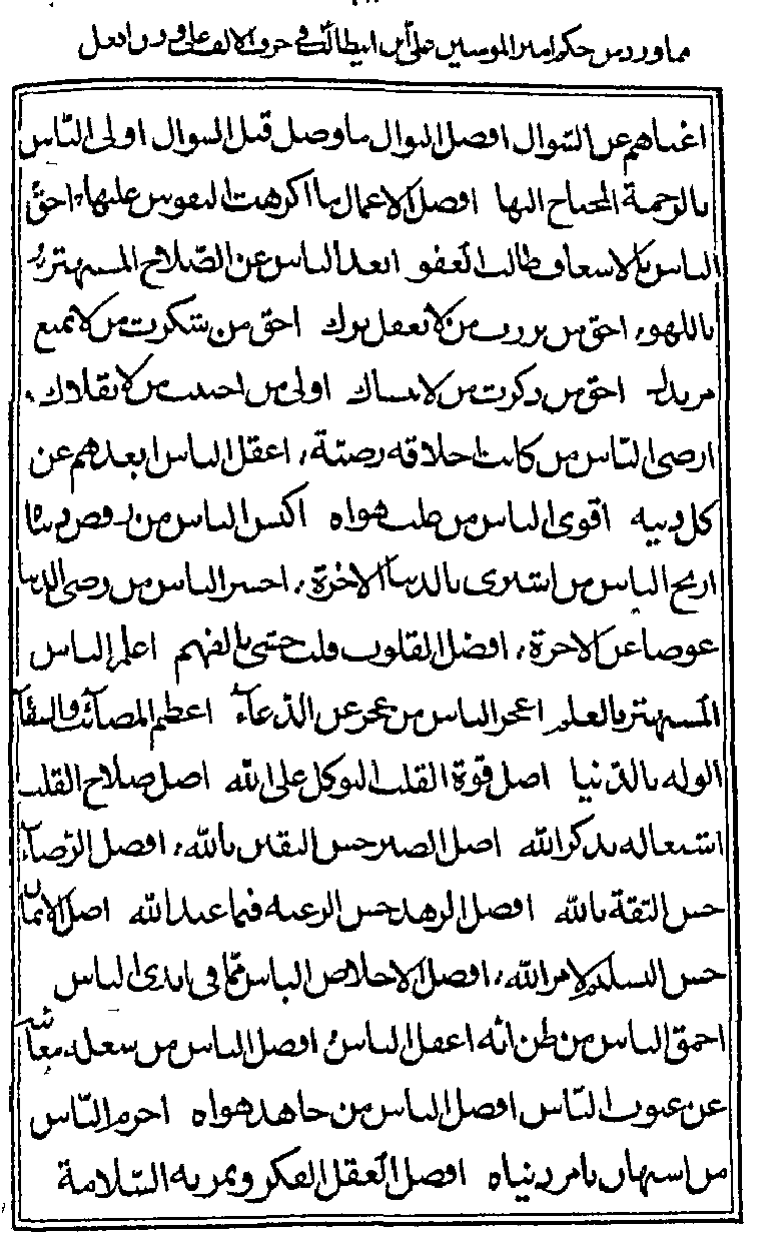 مما ورد من حكم امير المومنين على ابن ابيطالب في حرف الالف على وزن افعل
اغناهم عن السّوال افضل النوال ما وصل قبل السوال اولى النّاس
بالرحمة المحتاج اليها افضل الاعمال ما اكرهت النفوس عليها احقّ
الناس بالاسعاف طالب العفو ابعد الناس عن الصّلاح المستهتر
باللهو احق من بررت من لا يغفل برك احقّ من شكرت من لا يمنع
مزيدك احق من ذكرت من لا ينساك اولى من احببت من لا يقلاك
ارضى النّاس من كانت اخلاقه رضيّة اعقل الناس ابعدهم عن
كل دنيه اقوى الناس من غلب هواه اكيس الناس من رفض دنياه
اربح الناس من اشترى بالدنيا الاخرة اخسر الناس من رضى الدنيا
عوضا عن الاخرة افضل القلوب قلب حشى بالفهم اعلم الناس
المستهتر بالعلم اعجز الناس من عجز عن الدّعآء اعظم المصآئب والشقآ
الوله بالدّنيا اصل قوة القلب التوكل على الله اصل صلاح القلب
اشتغاله بذكر الله اصل الصبر حسن اليقين بالله افضل الرّضآ
حسن الثقة بالله افضل الزهد حسن الرغبه فيما عند الله اصل الايمان
حسن التسليم لامر الله افضل الاخلاص الياس ممّا فى ايدى الناس
احمق الناس من ظن انّه اعقل الناس افضل الناس من شغله معآئبه
عن عيوب النّاس افضل الناس من جاهد هواه احزم النّاس
من استهان بامر دنياه افضل العقل الفكر وثمرته السّلامة